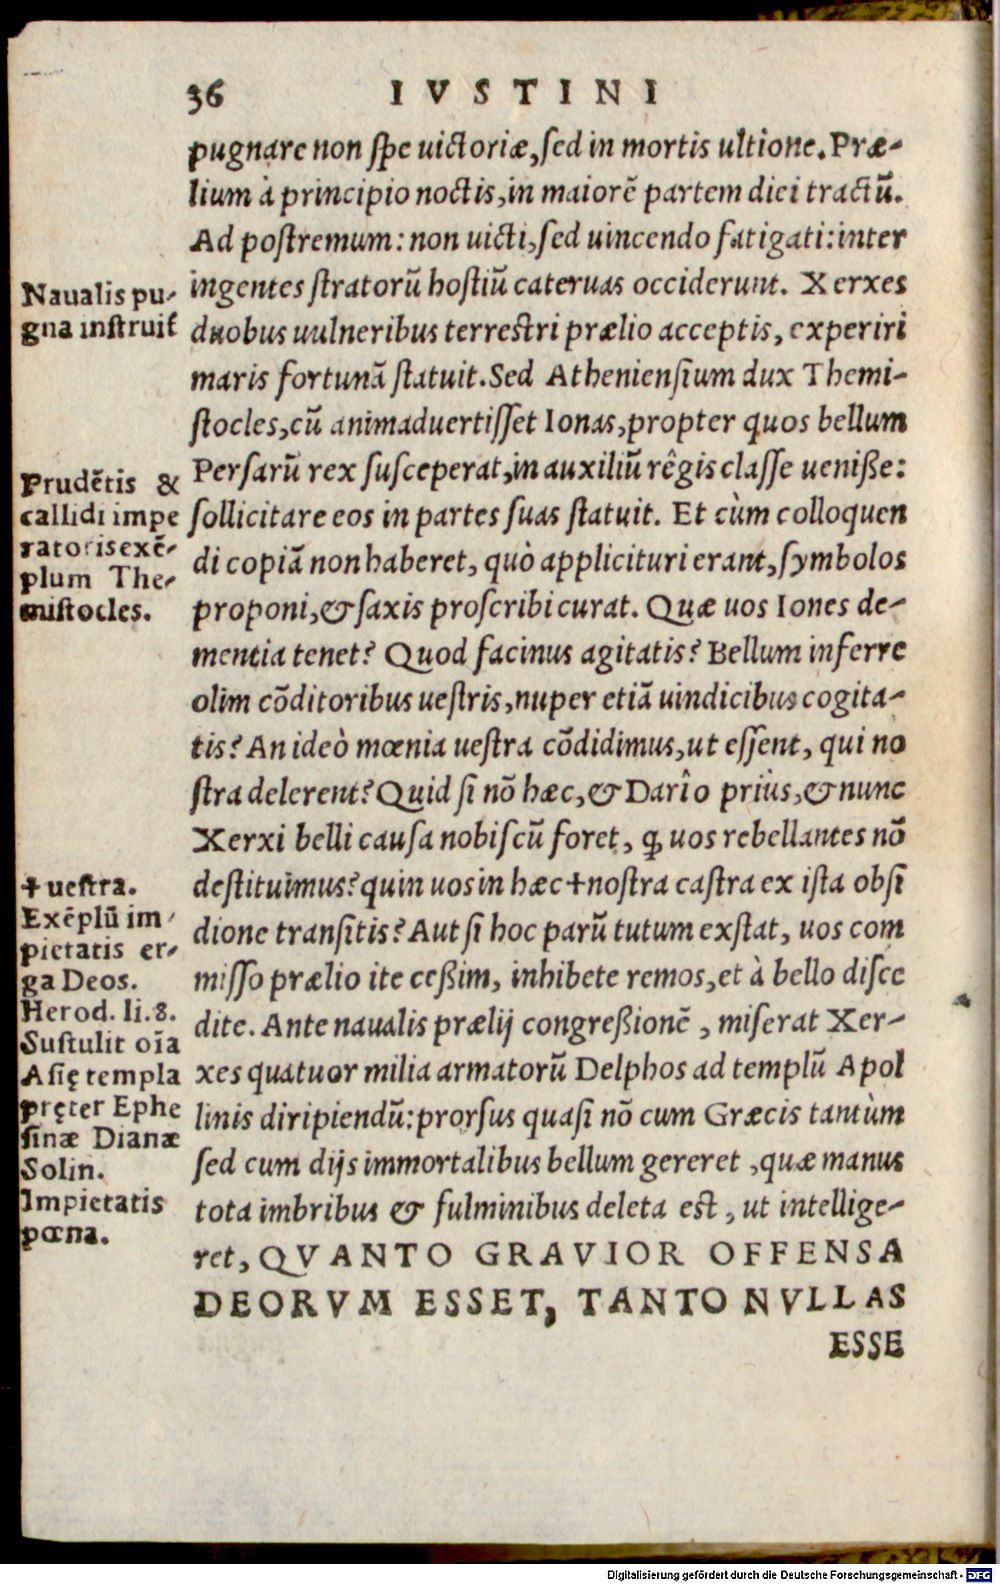 36 IVSTINI
pugnare non spe uictoriæ, sed in mortis ultione. Præ-
lium à principio noctis, in maiorē partem diei tractū.
Ad postremum: non uicti, sed uincendo fatigati: inter
ingentes stratorū hostiū cateruas occiderunt. Xerxes
duobus uulneribus terrestri prælio acceptis, experiri
maris fortunā statuit. Sed Atheniensium dux Themi-
stocles, cū animaduertisset Ionas, propter quos bellum
Persarū rex susceperat, in auxiliū rêgis classe uenisse:
sollicitare eos in partes suas statuit. Et cùm colloquen
di copiā non haberet, quò applicituri erant, symbolos
proponi, & saxis proscribi curat. Quæ uos Iones de-
mentia tenet? Quod facinus agitatis? Bellum inferre
olim cōditoribus uestris, nuper etiā uindicibus cogita-
tis? An ideò mœnia uestra cōdidimus, ut essent, qui no
stra delerent? Quid si nō hæc, & Darîo priùs, & nunc
Xerxi belli causa nobiscū foret, ꝙ uos rebellantes nō
destituimus? quin uos in hæc + nostra castra ex ista obsi
dione transitis? Aut si hoc parū tutum exstat, uos com
misso prælio ite cessim, inhibete remos, et à bello disce
dite. Ante naualis prælij congressionē, miserat Xer-
xes quatuor milia armatorū Delphos ad templū Apol
linis diripiendū: prorsus quasi nō cum Græcis tantùm
sed cum dijs immortalibus bellum gereret, quæ manus
tota imbribus & fulminibus deleta est, ut intellige-
ret, QVANTO GRAVIOR OFFENSA
DEORVM ESSET, TANTO NVLLAS
ESSE
Naualis pu-
gna instruit̄
Prudētis &
callidi impe
ratoris exē-
plum The-
mistocles.
+ uestra.
Exēplū im-
pietatis er-
ga Deos.
Herod. li. 8.
Sustulit oīa
Asię templa
pręter Ephe
sinæ Dianæ
Solin.
Impietatis
pœna.
Digitalisierung gefördert durch die Deutsche Forschungsgemeinschaft - DFG